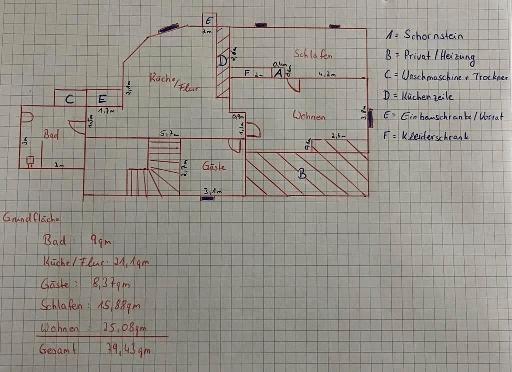 E
2m
Schlafen
D
F
2m
A
4,2m
Küche/Flur
C
E
1,7m
Wohnen
Bad
5,7m
2,5m
3m
Gäste
B
3m
3,1m
1 = Schornstein
B = Privat/Heizung
C = Waschmaschine + Trockner
D = Küchenzeile
E = Einbauschränke/Vorrat
F = Kleiderschrank
Grundfläche
Bad : 9qm
Küche/Flur: 21,1qm
Gäste : 8,37qm
Schlafen : 15,88qm
Wohnen : 25,08qm
Gesamt 79,43qm